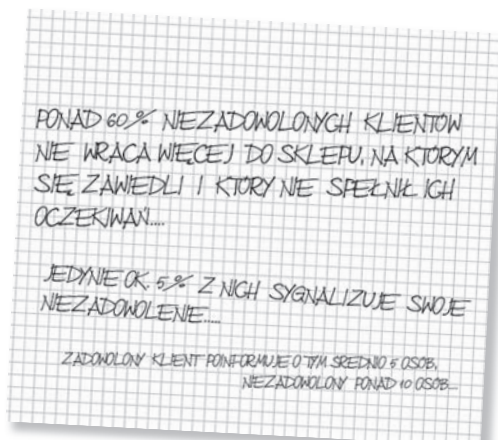 PONAD 60% NIEZADOWOLONYCH KLIENTÓW
NIE WRACA WIĘCEJ DO SKLEPU, NA KTÓRYM
SIĘ ZAWIEDLI I KTÓRY NIE SPEŁNIŁ ICH
OCZEKIWAŃ....
JEDYNIE OK. 5% Z NICH SYGNALIZUJE SWOJE
NIEZADOWOLENIE.....
ZADOWOLONY KLIENT POINFORMUJE O TYM ŚREDNIO 5 OSÓB,
NIEZADOWOLONY PONAD 10 OSÓB...